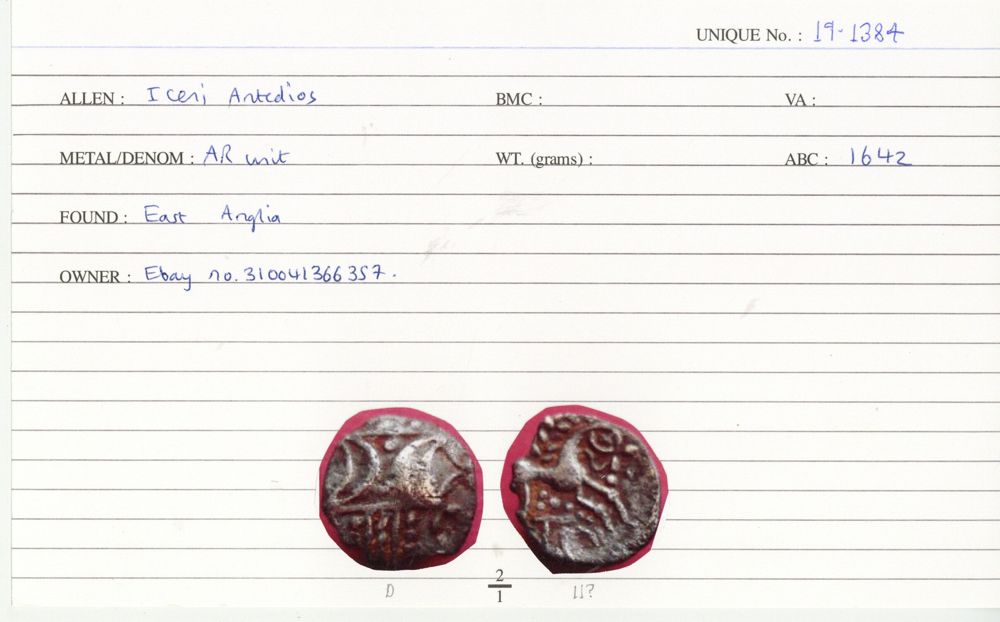 UNIQUE No. : 19·1384
ALLEN : Iceni Antedios BMC : VA :
METAL/DENOM : AR unit WT. (grams) : ABC : 1642
FOUND : East Anglia
OWNER : Ebay no. 310041366357.
2
D 1 II?